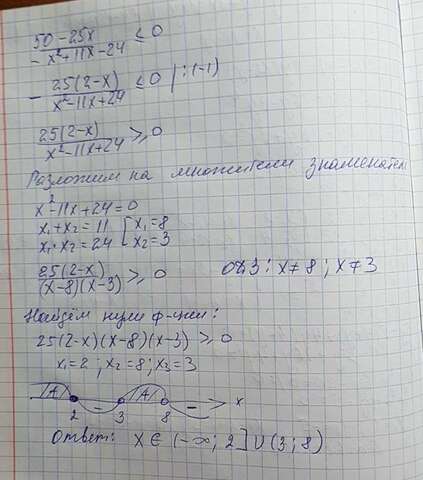 50-25x / -x²+11x-24 ≤ 0
- 25(2-x) / x²-11x+24 ≤ 0 | :(-1)
25(2-x) / x²-11x+24 ≥ 0
Разложим на множители знаменатель
x²-11x+24=0
x₁+x₂=11 [x₁=8
x₁·x₂=24 [x₂=3
25(2-x) / (x-8)(x-3) ≥ 0 ОДЗ: x≠8; x≠3
Найдём нули ф-ции:
25(2-x)(x-8)(x-3) ≥ 0
x₁=2; x₂=8; x₃=3
+ - + - x
2 3 8
Ответ: x∈(-∞; 2]∪(3; 8)